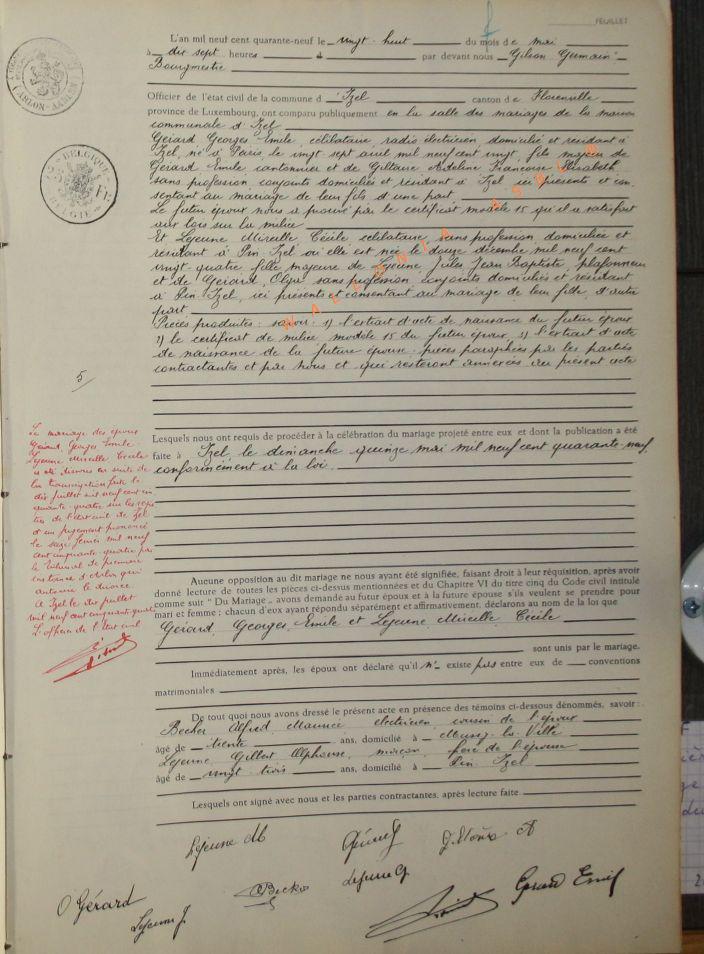 FEUILLET
L'an mil neuf cent quarante-neuf le vingt-huit du mois de mai
à dix sept heures par devant nous Gilson Germain
Bourgmestre
Officier de l'état civil de la commune d'Izel canton de Florenville
province de Luxembourg, ont comparu publiquement en la salle des mariages de la maison
communale d'Izel
Gérard Georges Emile, célibataire radio électricien domicilié et résidant à
Izel, né à Paris, le vingt sept avril mil neuf cent vingt, fils majeur de
Gérard Emile cantonnier et de Giltaire Adeline Françoise Elisabeth
sans profession, conjoints domiciliés et résidant à Izel, ici présents et con
sentant au mariage de leur fils d'une part
Le futur époux nous a prouvé par le certificat modèle 15 qu'il a satisfait
aux lois sur la milice
Et Lejeune Mireille Cécile célibataire sans profession domiciliée et
résidant à Pin Izel où elle est née le douze décembre mil neuf cent
vingt quatre fille majeure de Lejeune Jules Jean Baptiste, plafonneur
et de Gérard, Olga sans profession conjoints domiciliés et résidant
à Pin Izel, ici présents et consentant au mariage de leur fille, d'autre
part
Pièces produites: savoir: 1) l'extrait d'acte de naissance du futur époux
2) le certificat de milice modèle 15 du futur époux, 3) l'extrait d'acte
de naissance de la future épouse pièces paraphées par les parties
contractantes et par nous et qui resteront annexées au présent acte
WALLONIA ASBL
BELGIQUE
BELGIE
ARLON-AARLEN
5
Lesquels nous ont requis de procéder à la célébration du mariage projeté entre eux et dont la publication a été
faite à Izel, le dimanche quinze mai mil neuf cent quarante-neuf,
conformément à la loi
Le mariage des époux
Gérard, Georges Emile
Lejeune Mireille Cécile
a été dissous en suite de
la transcription faite le
dix juillet mil neuf cent cin
quante-quatre sur les regis
tres de l'état civil de Izel
d'un jugement prononcé
le seize février mil neuf
cent cinquante quatre par
le tribunal de première
instance d'Arlon qui
autorise le divorce
A Izel le dix juillet
mil neuf cent cinquante quatre
L'officier de l'état civil
Aucune opposition au dit mariage ne nous ayant été signifiée, faisant droit à leur réquisition, après avoir
donné lecture de toutes les pièces ci-dessus mentionnées et du Chapitre VI du titre cinq du Code civil intitulé
comme suit "Du Mariage", avons demandé au futur époux et à la future épouse s'ils veulent se prendre pour
mari et femme ; chacun d'eux ayant répondu séparément et affirmativement, déclarons au nom de la loi que
Gérard, Georges, Emile et Lejeune Mireille, Cécile
sont unis par le mariage.
Immédiatement après, les époux ont déclaré qu'il n' existe pas entre eux de conventions
matrimoniales
De tout quoi nous avons dressé le présent acte en présence des témoins ci-dessous dénommés, savoir :
Becker Alfred, Maurice électricien cousin de l'époux
âgé de trente ans, domicilié à Mussy-la-Ville
Lejeune, Gilbert Alphonse, maçon, frère de l'épouse
âgé de vingt trois ans, domicilié à Pin Izel
Lesquels ont signé avec nous et les parties contractantes, après lecture faite
Lejeune M
Becker
Lejeune G
Gérard Emile
O Gérard
Lejeune J.